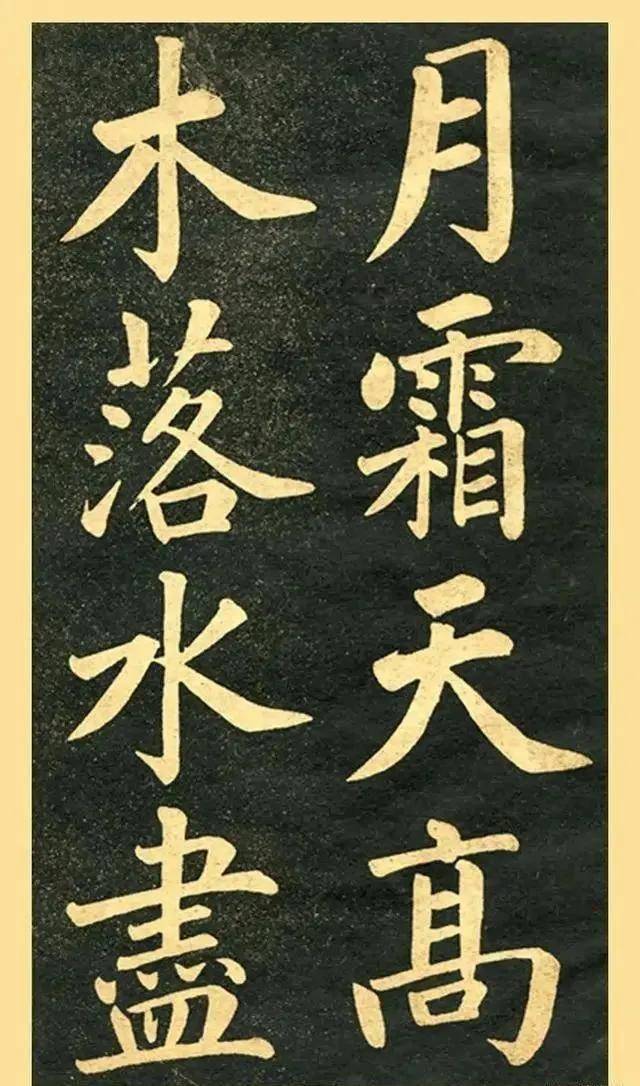 月霜天髙
木落水盡